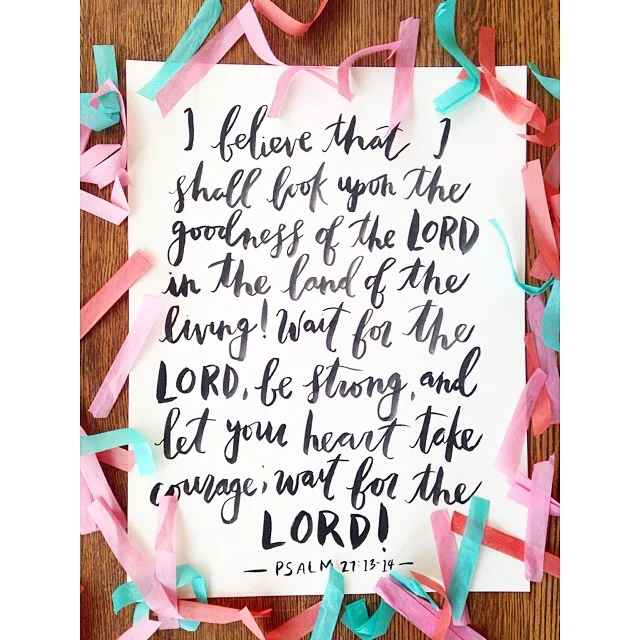 I believe that I
shall look upon the
goodness of the LORD
in the land of the
living! Wait for the
LORD, be strong, and
let your heart take
courage; wait for the
LORD!
— PSALM 27:13-14 —